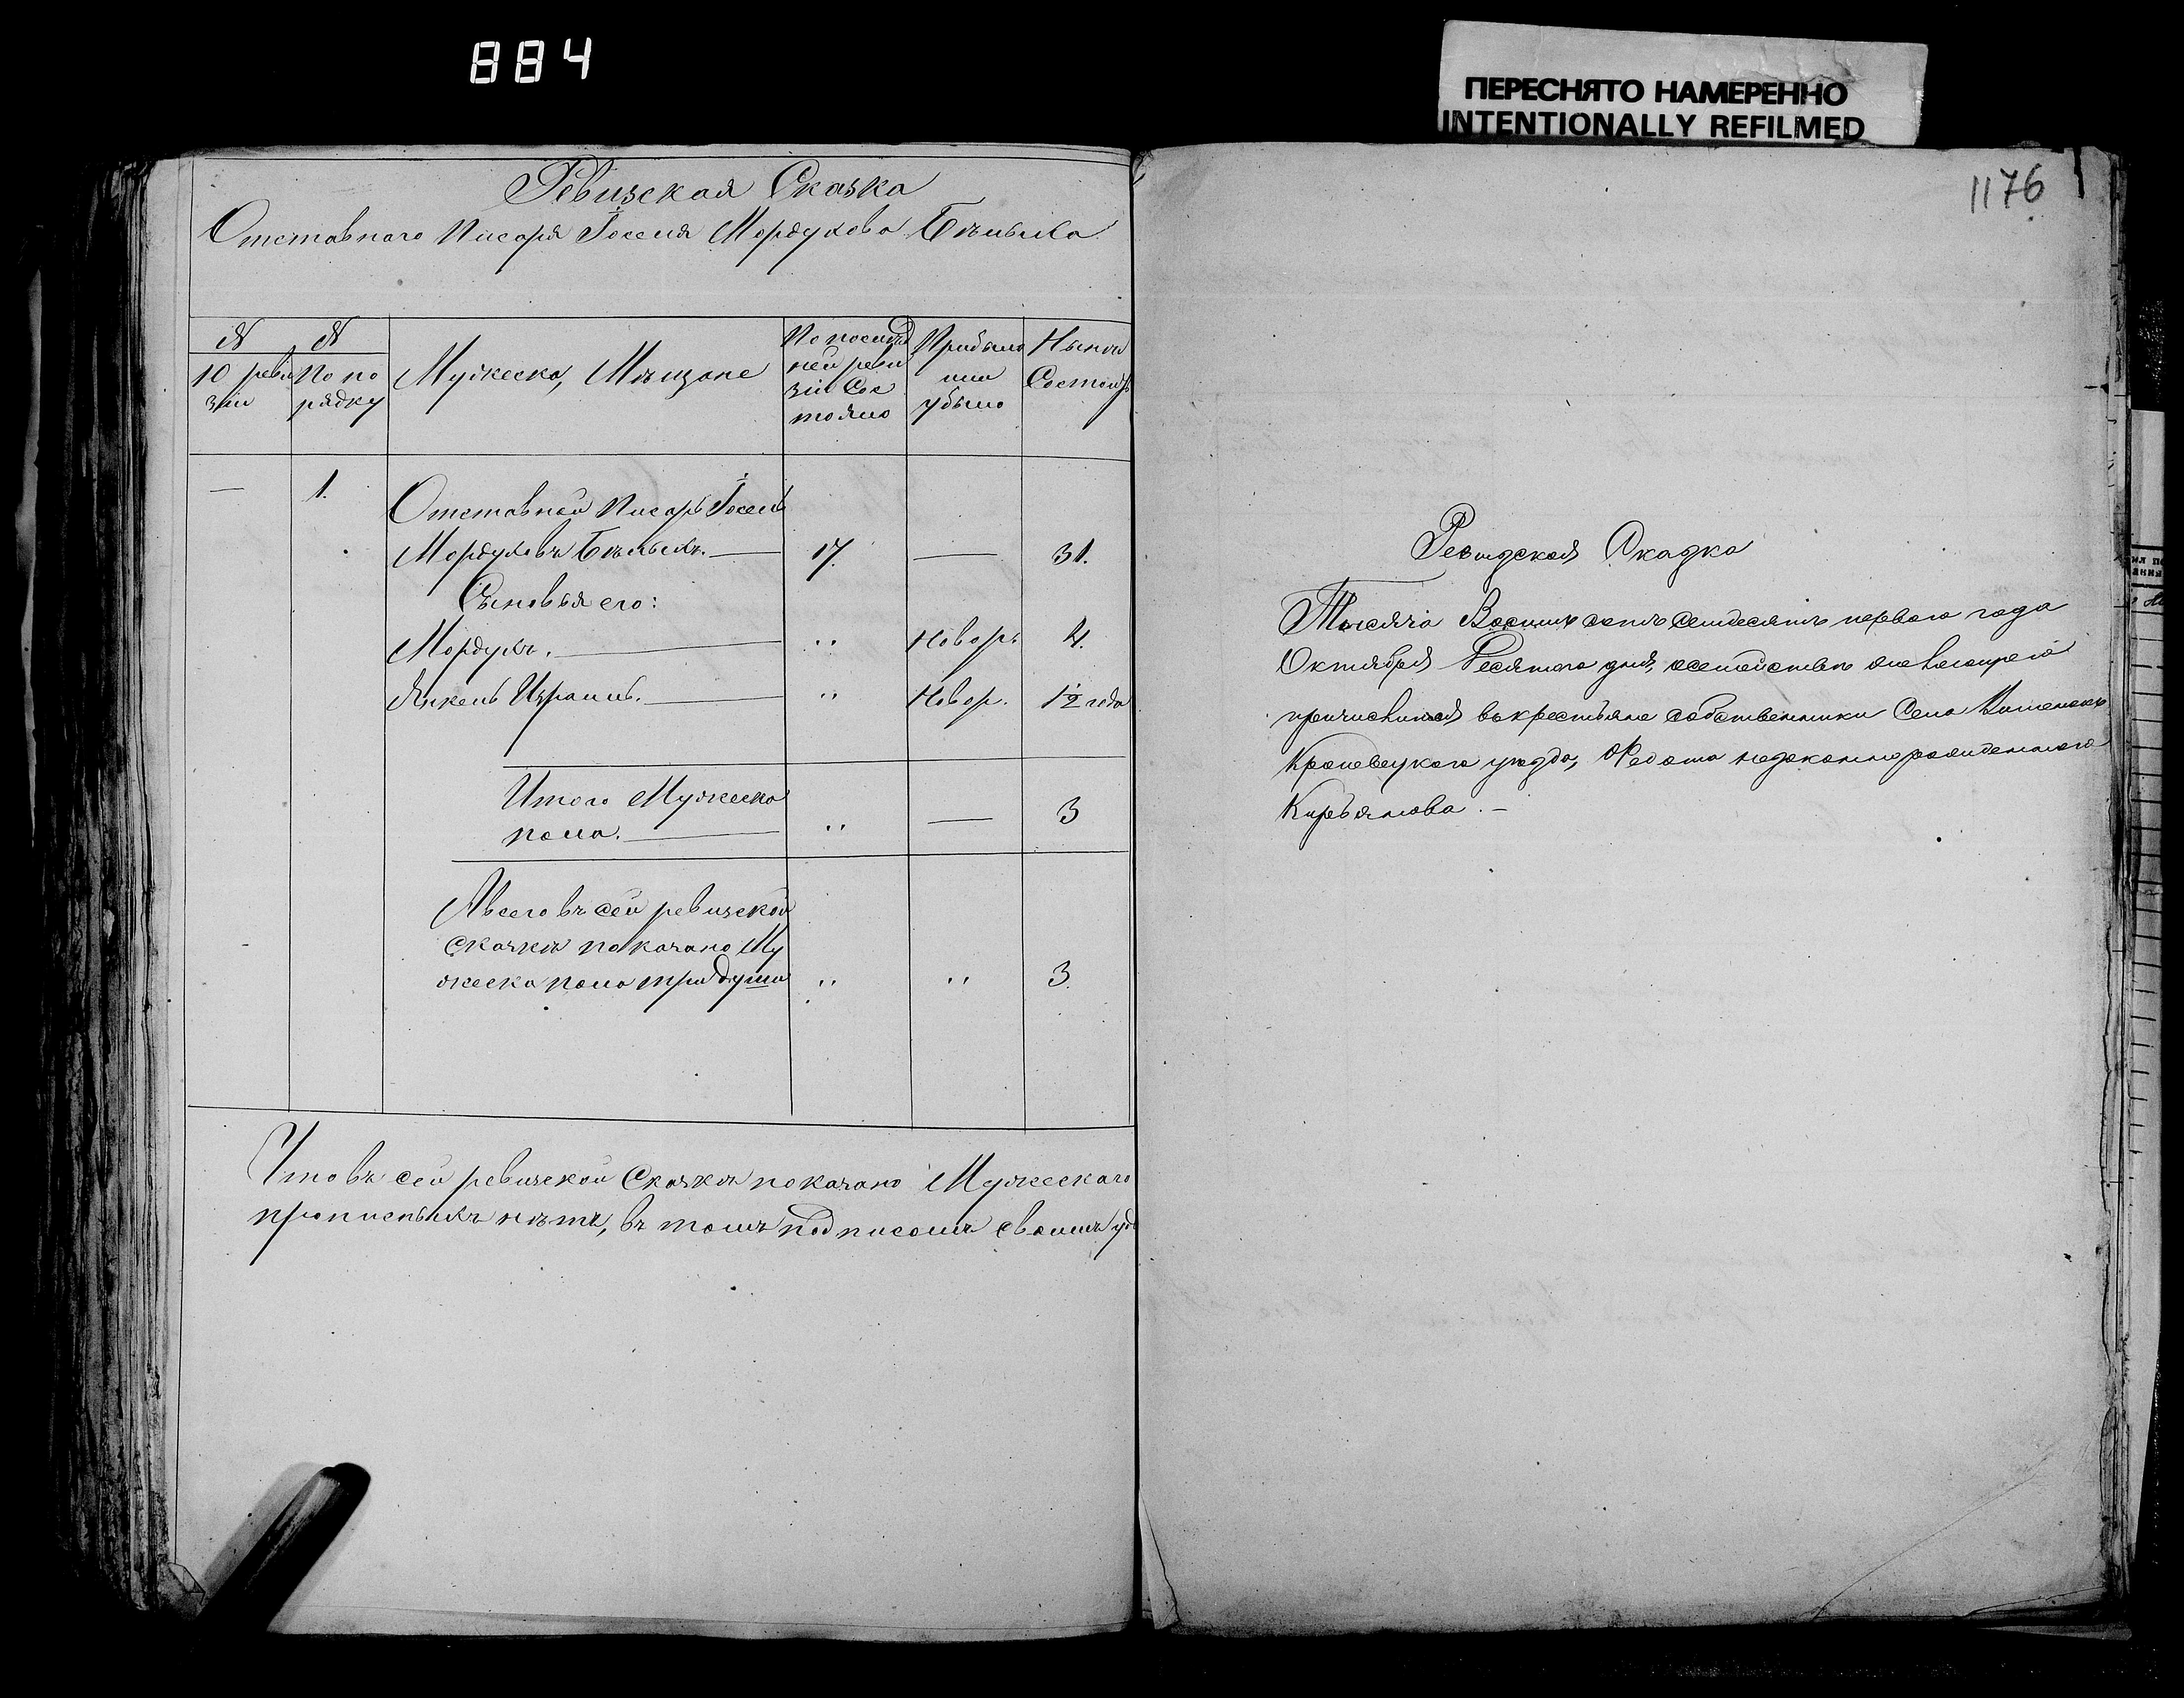 884
ПЕРЕСНЯТО НАМЕРЕННО
INTENTIONALLY REFILMED
1176
Ревизская Сказка
Отставнаго Писаря Іоселя Мордухова
№ 10 ревизіи
№ По порядку
Мужеска, Мѣщане
По послѣдней ревизіи Состояло
Прибыло или убыло
Нынѣ Состоитъ
— 1. Отставной Писарь Іосель
Мордуховъ — 17. — 31.
Сыновья его:
Мордухъ. — " Новор. 4.
Янкель Израиль. — " Новор. 1/2 года
Итого Мужеска
пола. — " — 3
А всего въ сей ревизской
Сказкѣ показано Му
жеска пола три души " " 3.
Что въ сей ревизской Сказкѣ показано Мужескаго
прописныхъ нѣтъ, въ томъ подписомъ своимъ удо
Ревизская Сказка
Тысяча Восимь сотъ семдесятъ перваго года
Октября Десятого дня, осемойствѣ
причисл въкрестьяне собственники Села
Кролевецкого уезда, Федота незаконнорожденного
Кирьянова. —